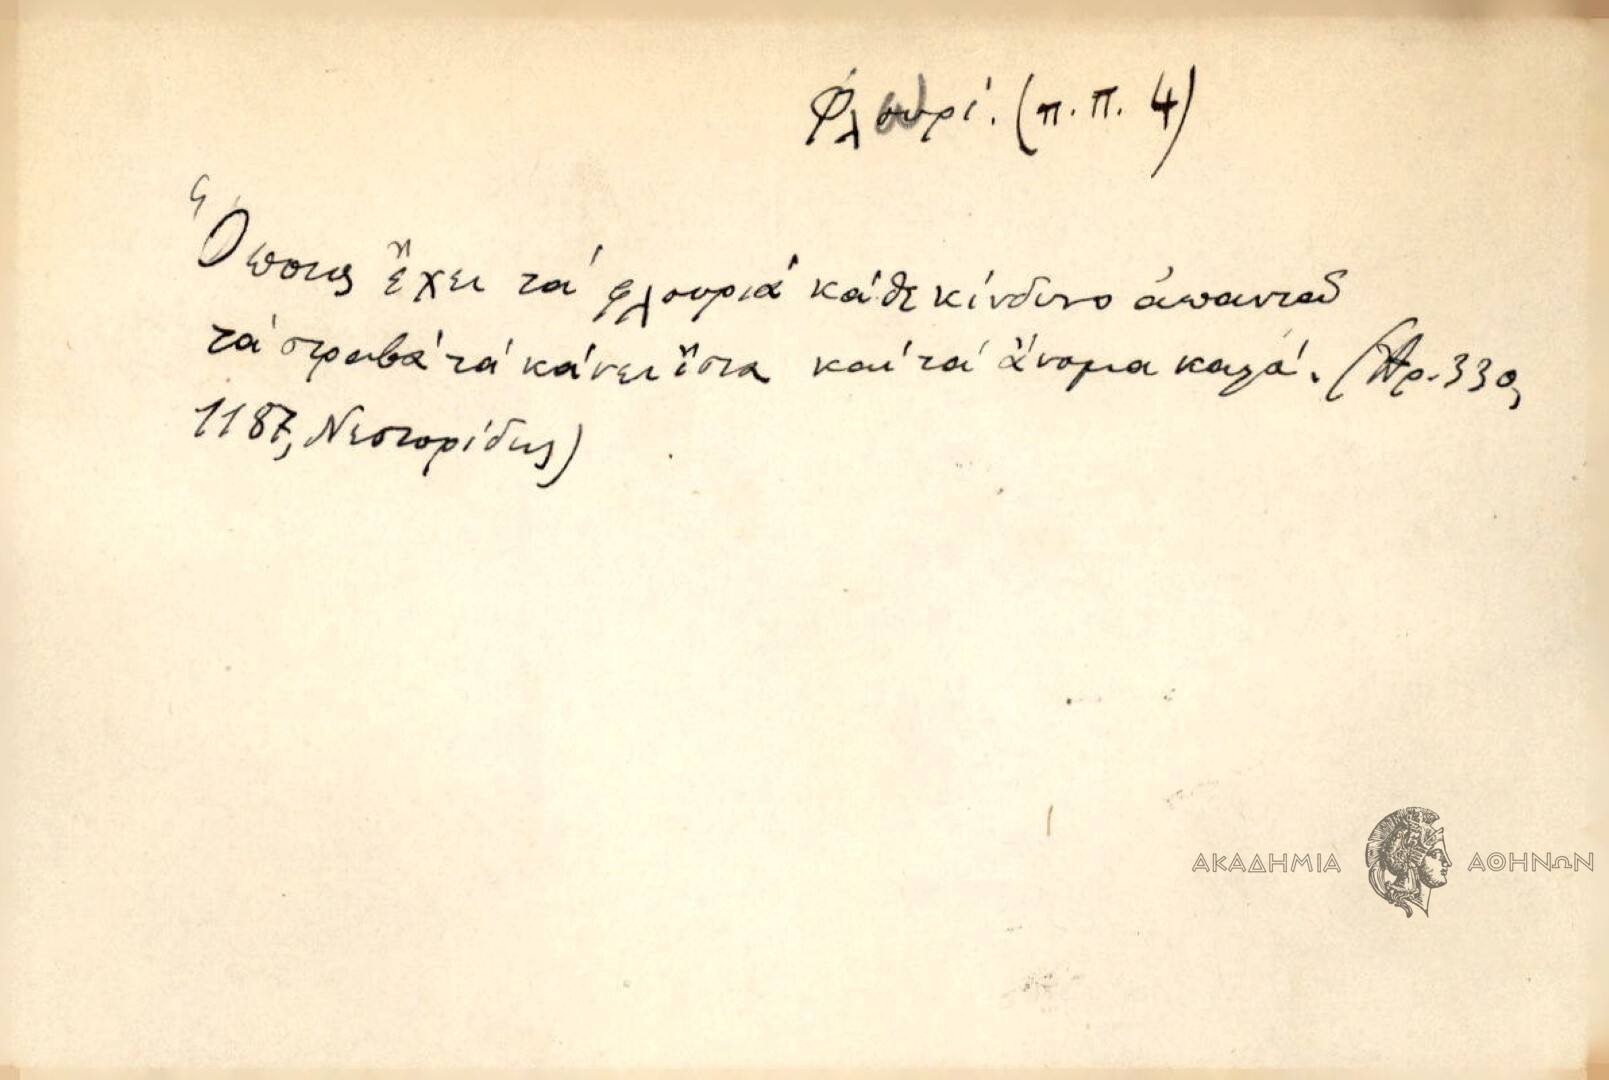 Φλουρί. (π.π. 4)
Ὅποιος ἔχει τά φλουριά κάθε κίνδυνο ἀπαντᾶ
τά στραβά τά κάνει ἴσια καί τά ἄνομα καλά. (Ἀρ. 330,
1187, Νεστορίδης)
ΑΚΑΔΗΜΙΑ ΑΘΗΝΩΝ